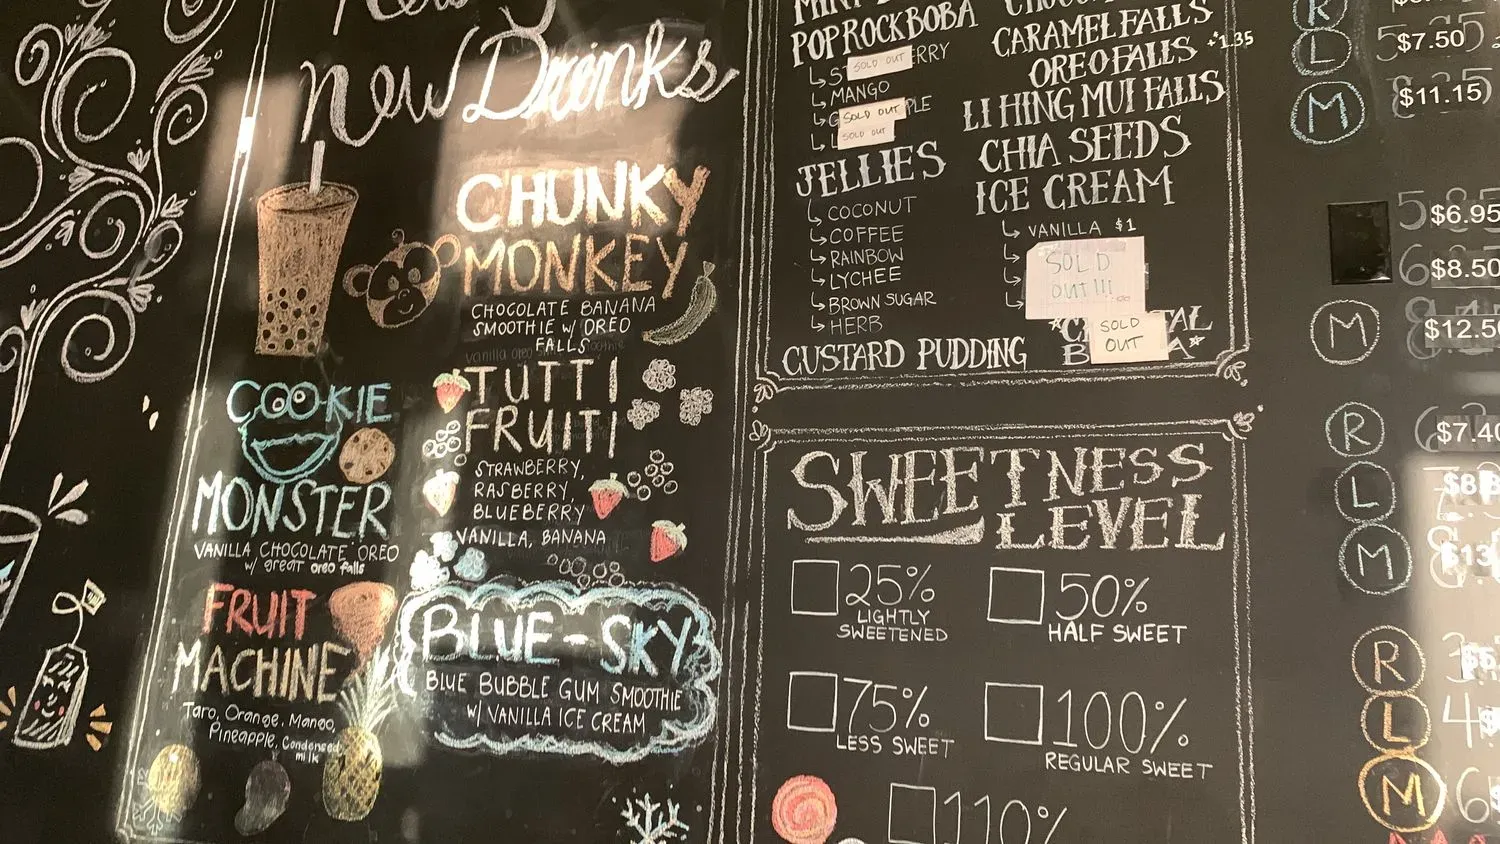 New Drinks
CHUNKY
MONKEY
CHOCOLATE BANANA
SMOOTHIE w/ OREO
FALLS
COOKIE
MONSTER
VANILLA, CHOCOLATE, OREO
w/ great oreo falls
TUTTI
FRUITI
STRAWBERRY,
RASBERRY,
BLUEBERRY
VANILLA, BANANA
FRUIT
MACHINE
Taro, Orange, Mango,
Pineapple, Condensed
milk
BLUE-SKY
BLUE BUBBLE GUM SMOOTHIE
w/ VANILLA ICE CREAM
POP ROCK BOBA
SOLD OUT
MANGO
SOLD OUT
SOLD OUT
JELLIES
COCONUT
COFFEE
RAINBOW
LYCHEE
BROWN SUGAR
HERB
CUSTARD PUDDING
CARAMEL FALLS
OREO FALLS +1.35
LI HING MUI FALLS
CHIA SEEDS
ICE CREAM
VANILLA $1
SOLD
OUT!!!
SOLD
OUT
SWEETNESS
LEVEL
25%
LIGHTLY
SWEETENED
50%
HALF SWEET
75%
LESS SWEET
100%
REGULAR SWEET
110%
R
L $7.50
M $11.15
$6.95
$8.50
M $12.5
R $7.40
L
M $13
R
L
M